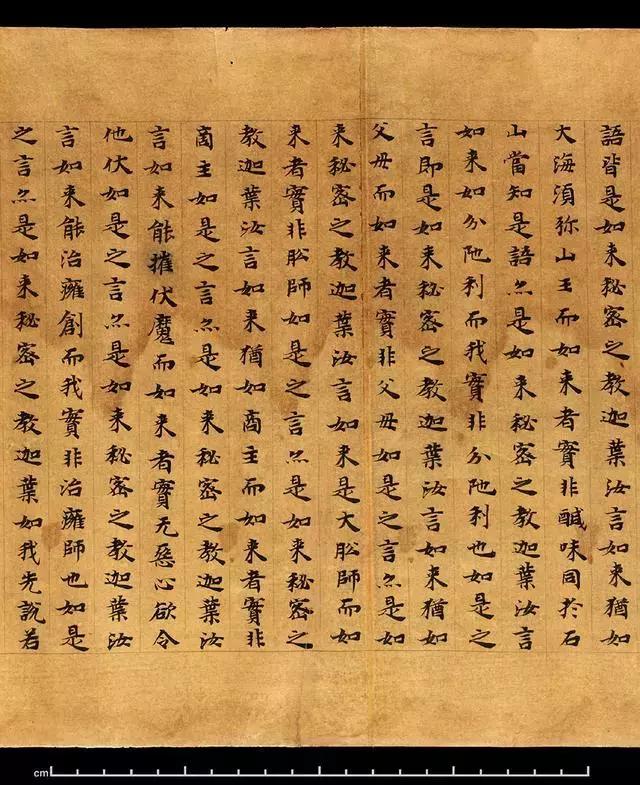 語皆是如来秘密之教迦葉汝言如来猶如
大海湏弥山王而如来者實非醎味同於石
山當知是語亦是如来秘密之教迦葉汝言
如来如分陁利而我實非分陁利也如是之
言即是如来秘密之教迦葉汝言如来猶如
父母而如来者實非父母如是之言亦是如
来秘密之教迦葉汝言如来是大舩師而如
来者實非舩師如是之言亦是如来秘密之
教迦葉汝言如来猶如商主而如来者實非
商主如是之言亦是如来秘密之教迦葉汝
言如来能摧伏魔而如来者實无惡心欲令
他伏如是之言亦是如来秘密之教迦葉汝
言如来能治癰創而我實非治癰師也如是
之言亦是如来秘密之教迦葉如我先說若
cm